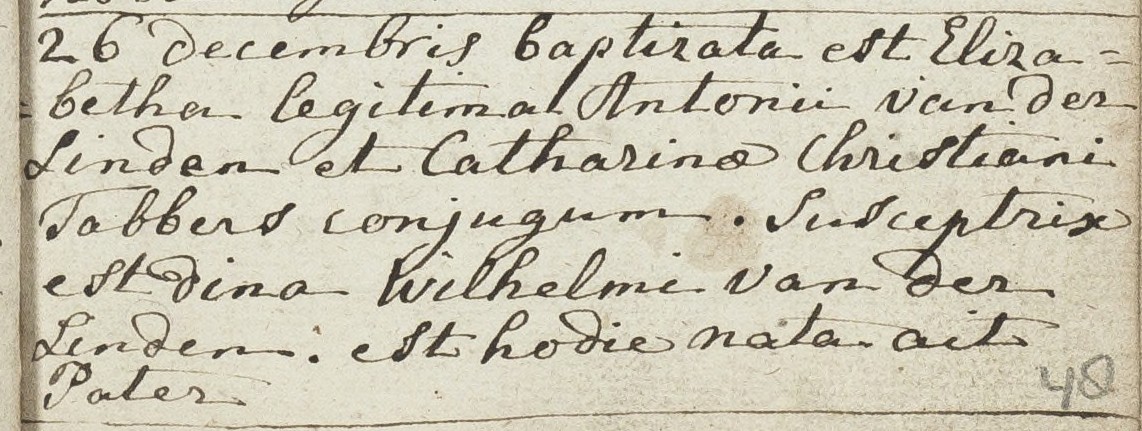 26 decembris baptizata est Eliza=
=betha legitima Antonii van der
Linden et Catharinæ Christiani
Tabbers conjugum. Susceptrix
est dina Wilhelmi van der
Linden. est hodie nata ait
Pater
48